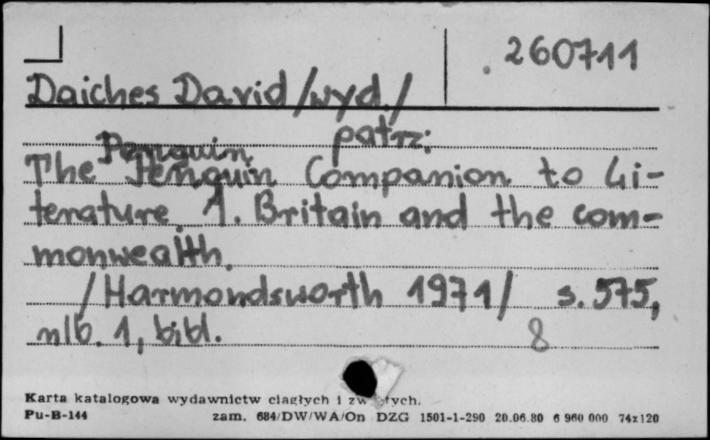 260711
Daiches David /wyd./
patrz:
Penguin
The Penguin Companion to Li-
terature. 1. Britain and the com-
monwealth.
/Harmondsworth 1971/ s. 575,
nlb. 1, bibl. 8
Karta katalogowa wydawnictw ciągłych i zw tych.
Pu-B-144 zam. 684/DW/WA/On DZG 1501-1-290 20.06.80 6 960 000 74x120